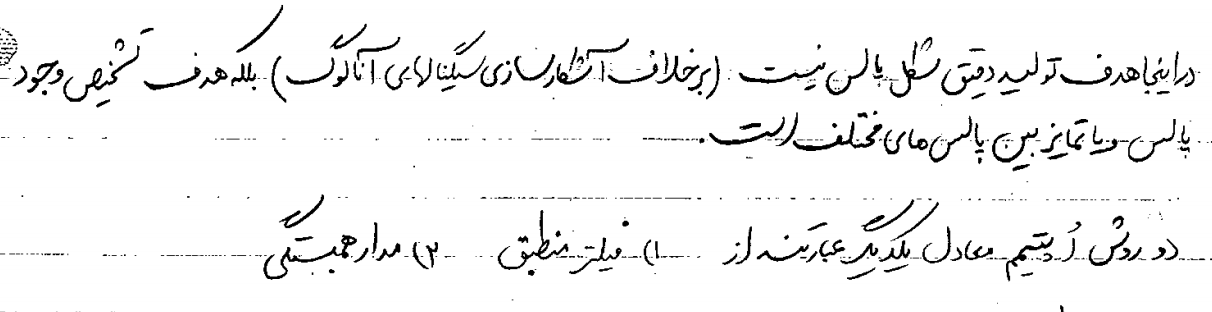 در اینجا هدف تولید دقیق شکل پالس نیست (برخلاف آشکارسازی سیگنالهای آنالوگ) بلکه هدف تشخیص وجود
پالس و یا تمایز بین پالس های مختلف است.
دو روش اُپتیمم معادل یکدیگر عبارتند از ۱) فیلتر منطبق ۲) مدار همبستگی